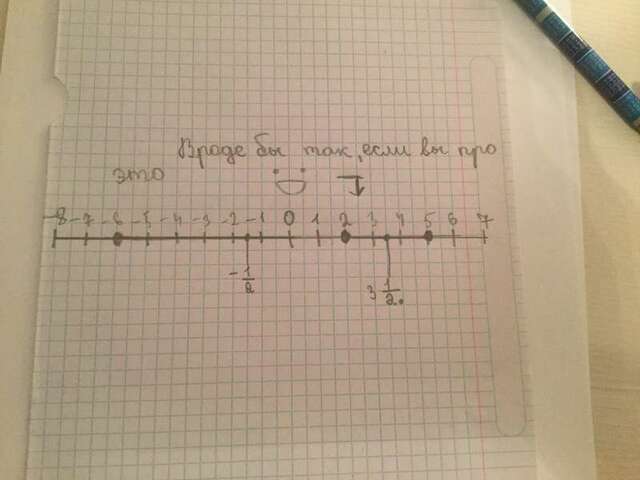 Вроде бы так, если вы про
это
-8 -7 -6 -5 -4 -3 -2 -1 0 1 2 3 4 5 6 7
-1/2 3 1/2.